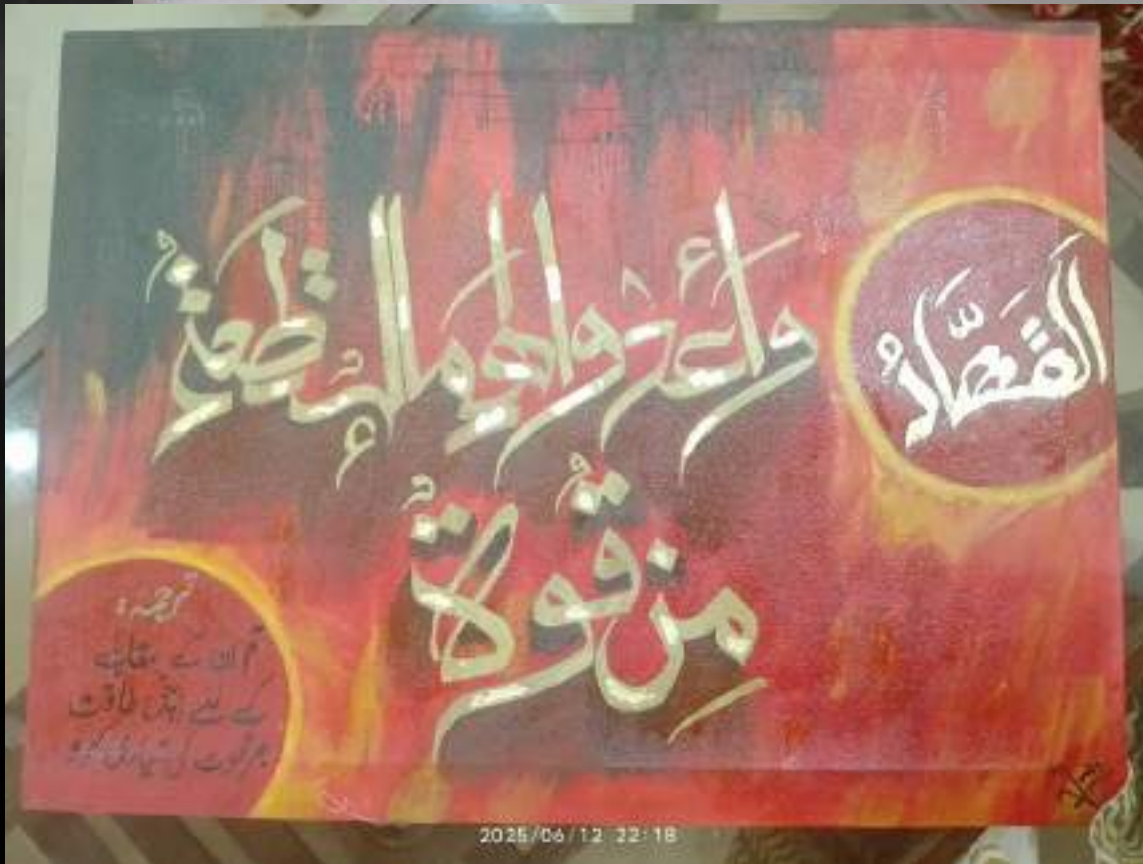 القهار
وأعدوا لهم ما استطعتم
من قوة
ترجمہ:
تم ان کے مقابلے
کے لیے اپنی طاقت
بھر قوت کی تیاری کرو
2025/06/12 22:18